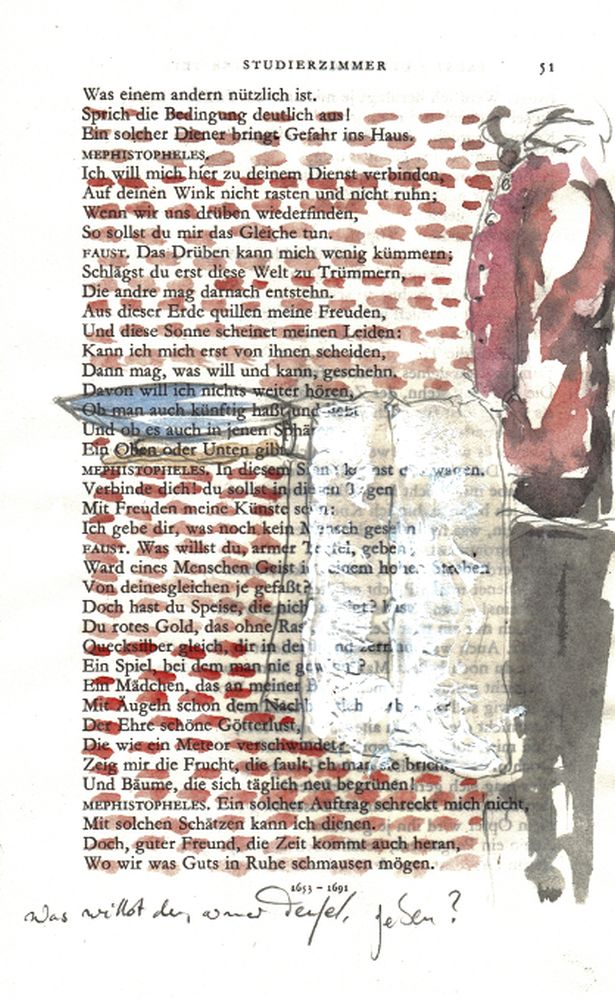 STUDIERZIMMER 51
Was einem andern nützlich ist.
Sprich die Bedingung deutlich aus!
Ein solcher Diener bringt Gefahr ins Haus.
MEPHISTOPHELES.
Ich will mich hier zu deinem Dienst verbinden,
Auf deinen Wink nicht rasten und nicht ruhn;
Wenn wir uns drüben wiederfinden,
So sollst du mir das Gleiche tun.
FAUST. Das Drüben kann mich wenig kümmern;
Schlägst du erst diese Welt zu Trümmern,
Die andre mag darnach entstehn.
Aus dieser Erde quillen meine Freuden,
Und diese Sonne scheinet meinen Leiden:
Kann ich mich erst von ihnen scheiden,
Dann mag, was will und kann, geschehn.
Davon will ich nichts weiter hören,
Ob man auch künftig haßt und
Und ob es auch in jenen
Ein Oben oder Unten gibt
MEPHISTOPHELES. In diesem wagen.
Verbinde dich! du sollst in
Mit Freuden meine Künste
Ich gebe dir, was noch kein Mensch
FAUST. Was willst du, armer Teufel, geben?
Ward eines Menschen Geist in seinem hohen Streben
Von deinesgleichen je gefaßt?
Doch hast du Speise, die
Du rotes Gold, das ohne
Quecksilber gleich, dir in
Ein Spiel, bei dem man nie
Ein Mädchen, das an meiner
Mit Äugeln schon dem
Der Ehre schöne Götterlust,
Die wie ein Meteor verschwindet
Zeig mir die Frucht, die fault, eh man sie bricht,
Und Bäume, die sich täglich neu begrünen!
MEPHISTOPHELES. Ein solcher Auftrag schreckt mich nicht,
Mit solchen Schätzen kann ich dienen.
Doch, guter Freund, die Zeit kommt auch heran,
Wo wir was Guts in Ruhe schmausen mögen.
1653 – 1691
was willst du, armer Teufel, geben?